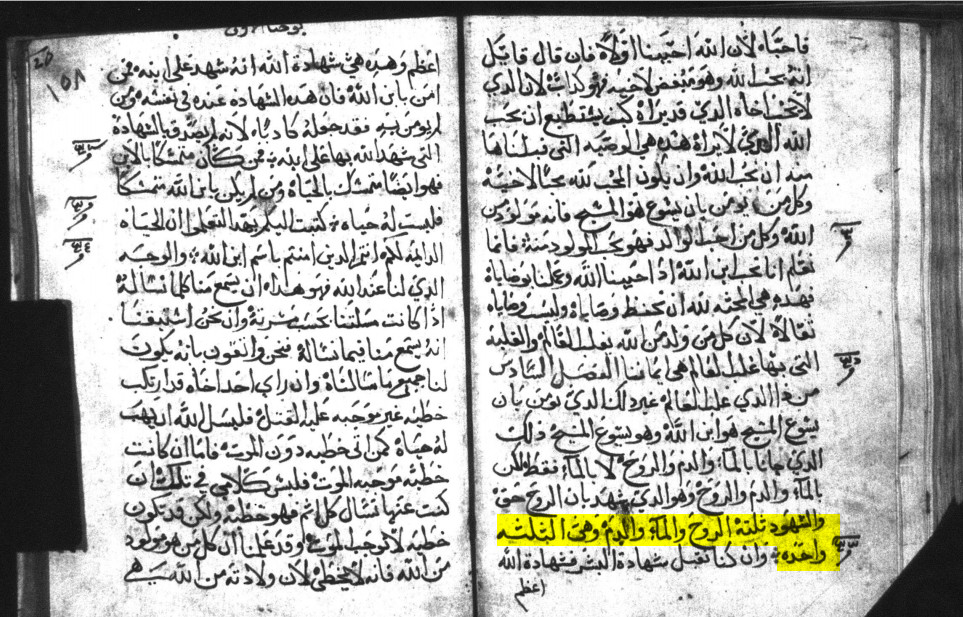 فاحبناه لان الله احبنا اولا فان قال قايل
انه يحب الله وهو مبغض لاخيه فهو كداب لان الدي
لا يحب اخاه الدي قد يراه كيف يستطيع ان يحب
الله الدي لا يراه هده هي الوصيه التي قبلناها
منه ان نحب الله وان يكون المحب لله محبا لاخيه
وكل من يومن بان يسوع هو المسيح فانه مولود من
الله وكل من احب الوالد فهو يحب المولود منه فانما
نعلم انا نحب ابن الله اذا احببنا الله وعملنا بوصاياه
فهده هي المحبه لله ان نحفظ وصاياه وليست وصاياه
ثقالا لان كل من ولد من الله يغلب العالم والغلبه
التي بها غلب العالم هي ايماننا الفصل السادس
من دا الدي غلب العالم غير دلك الدي يومن بان
يسوع المسيح هو ابن الله وهو يسوع المسيح دلك
الدي جانا بالماء والدم والروح لا بالماء فقط لكن
بالماء والدم والروح وهو الدي يشهد بان الروح حق
والشهود تلته الروح والماء والدم وهي التلته
واحده وان كنا نقبل شهادة البشر فشهادة الله
اعظم
١٥٨
اعظم وهده هي شهادة الله انه شهد على ابنه فمن
امن بابن الله فان هده الشهاده عنده في نفسه ومن
لم يومن به فقد جعله كادبا لانه لم يصدق بالشهادة
التي شهد الله بها على ابنه فمن كان متمسكا بالابن
فهو ايضا متمسك بالحياة ومن لم يكن بابن الله متمسكا
فليست له حياه كتبت اليكم بهدا لتعلموا ان الحياه
الدايمة لكم انتم الدين امنتم باسم ابن الله والوجه
الدي لنا عند الله فهو هدا ان يسمع منا كلما نساله
ادا كانت مسلتنا بحسب مسرته وان نحن استيقنا
انه يسمع منا فيما نساله فنحن واثقون بانه يكون
لنا جميع ما سالناه وان راي احد اخاه قد ارتكب
خطيه غير موجبه عليه القتل فليسل الله ان يهب
له حياة كمن اتى خطيه دون الموت فاما ان كانت
خطيه موجبه الموت فليس كلامي في تلك ان
كنت عنها تسال كل اثم فهو خطيه ولكن قد تكون
خطيه لا توجب الموت وقد علمنا ان كل من هو مولود
من الله فانه لا يخطي لان ولادته من الله هي